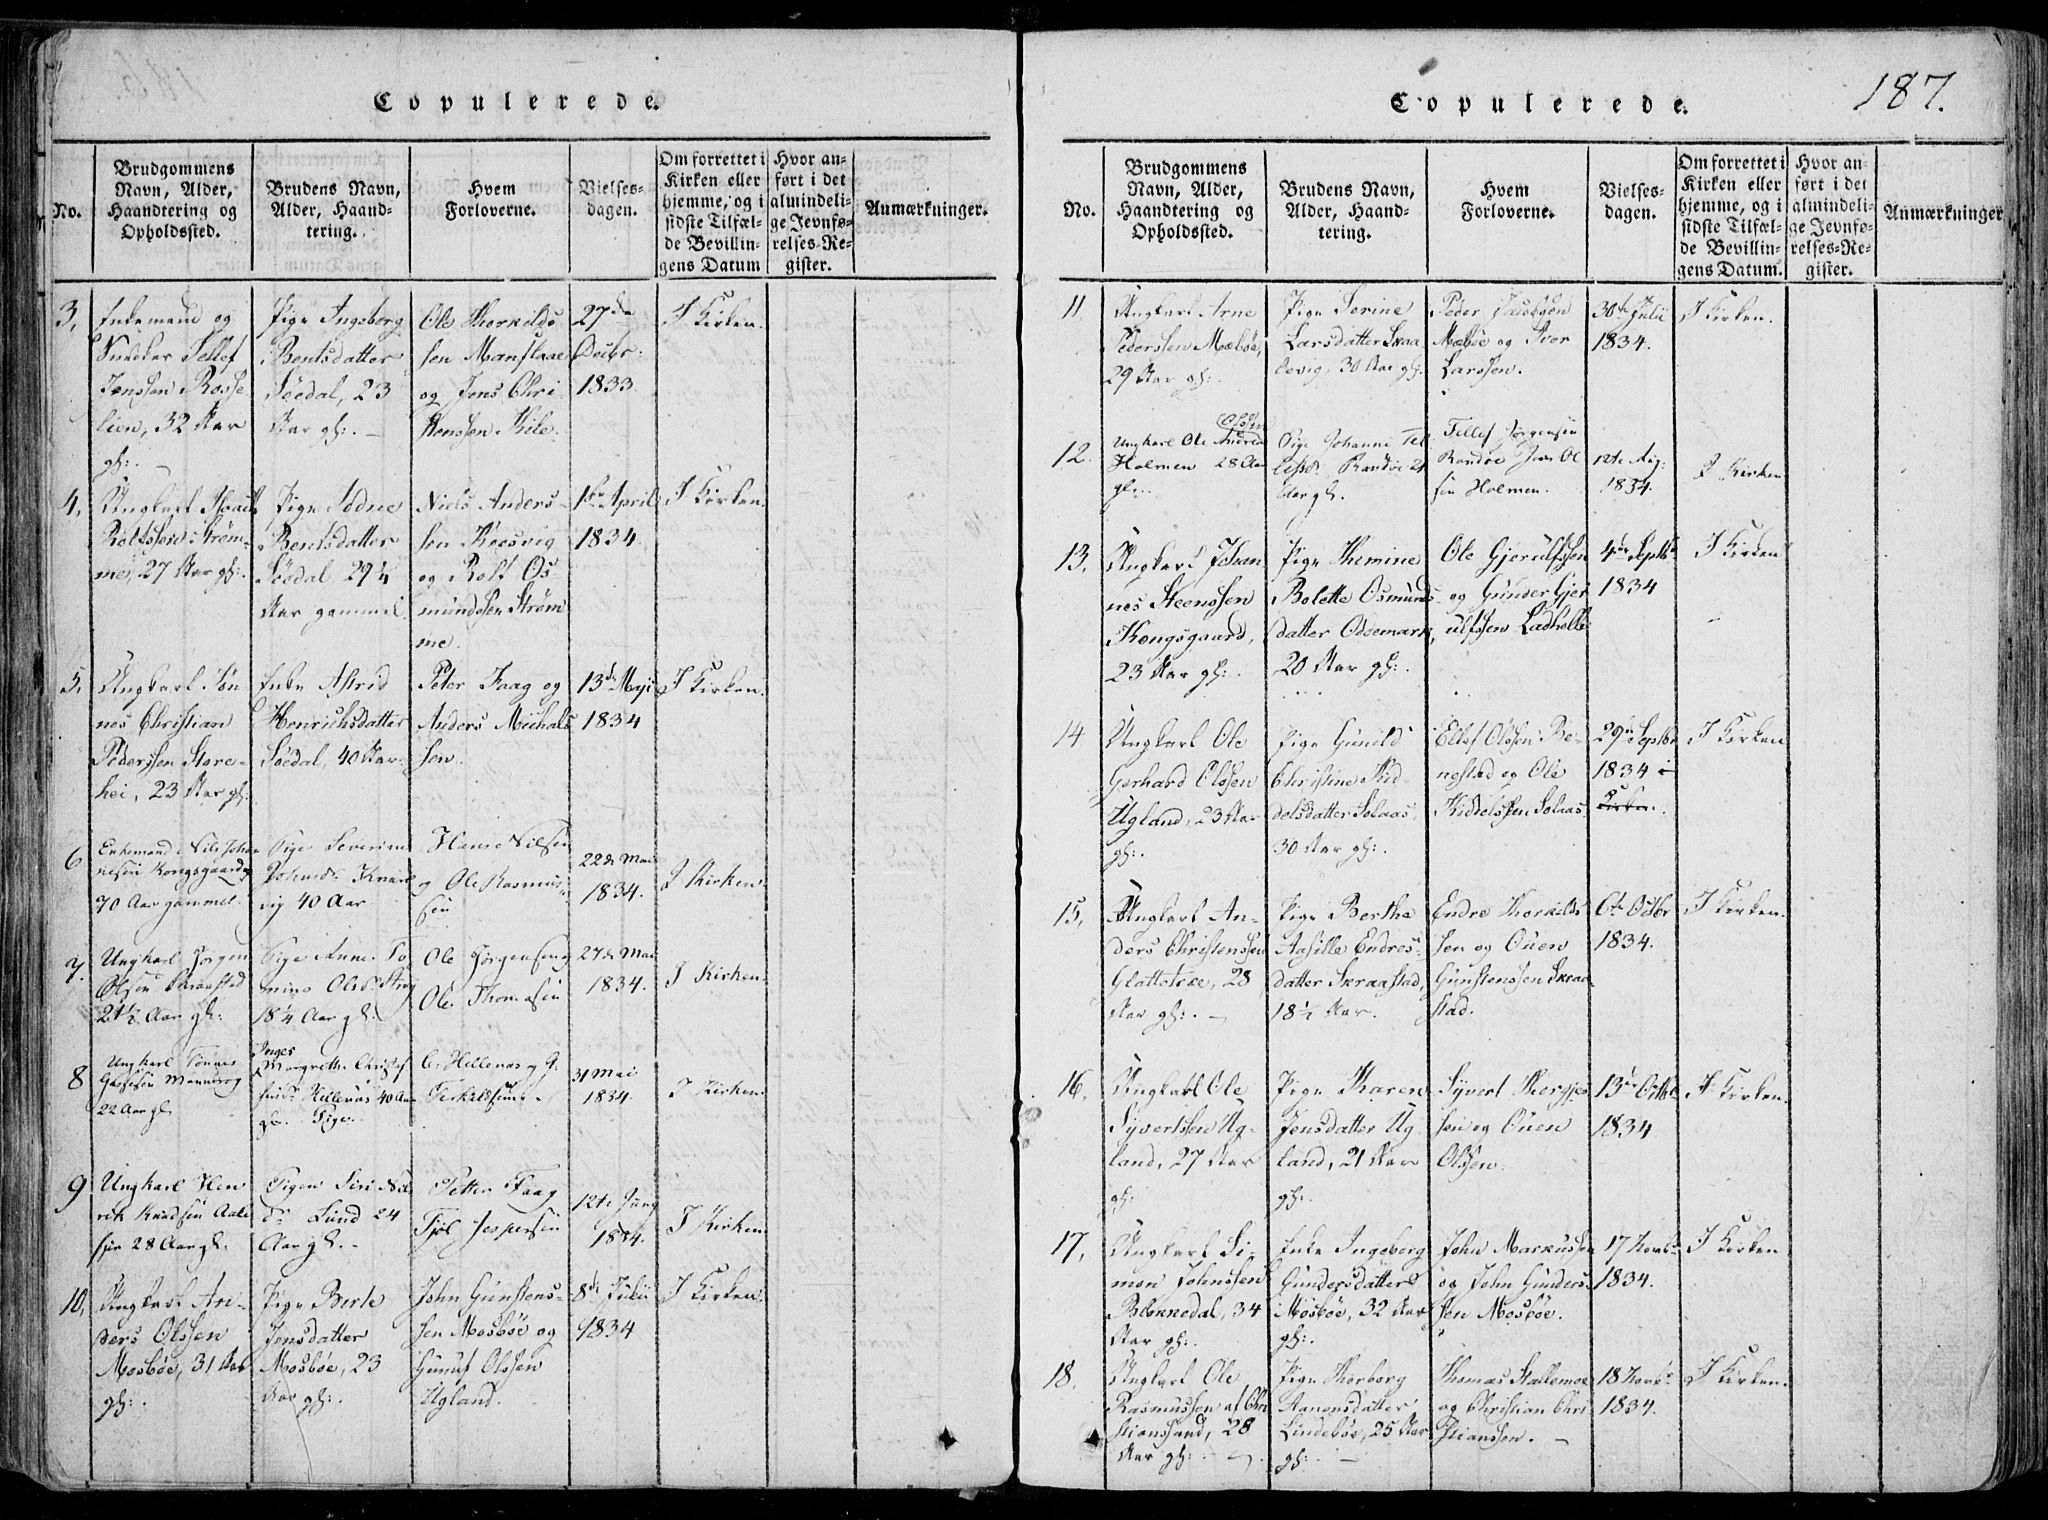 Copulerede.
No.
Brudgommens
Navn, Alder,
Haandtering og
Opholdssted.
Brudens Navn,
Alder, Haand-
tering.
Hvem
Forloverne.
Vielses-
dagen.
Om forrettet i
Kirken eller
hjemme, og i
sidste Tilfæl-
de Bevillin-
gens Datum
Hvor an-
ført i det
almindeli-
ge Jevnfø-
relses-Re-
gister.
Anmærkninger.
3,
Enkemand og
Snedker Tellef
Jenssen Rosse
lien, 32 Aar
gl:.
Pige Ingeborg
Bentsdatter
Søedal, 23
Aar gl:.
Ole Thorkilds
sen Manflaae
og Jens Chri
stenssen Kile.
27de
Decbr.
1833.
I Kirken.
4,
Ungkarl
Rolfssen Strøm-
me, 27 Aar gl:.
Pige Todne
Bentsdatter
Søödal 29¼
Aar gammel.
Niels Anders-
sen Køesvig
og Rolf Os-
mundssen Strøm
me.
1ste April
1834.
I Kirken.
5,
Ungkarl Tøn
nes Christian
Pederssen Store-
hei, 23 Aar gl:
Enke Astrid
Henrichsdatter
Søedal, 40 Aar.
Peter Faag og
Anders Michals
sen.
13de Maji
1834
I Kirken.
6
Enkemand Nils Johan
nesen Kongsgaard
70 Aar gammel.
Pige Severine
Knar
vig 40 Aar
Hans Nilsen
og Ole Rasmus
sen
22de Mai
1834.
I Kirken.
7.
Ungkarl Jørgen
Olsen
21½ Aar gl:
Pige Anne To
mine Olsd.
18¼ Aar gl:
Ole Jørgensen og
Ole Thomasen
27de Mai
1834.
I Kirken.
8
Ungkarl Tønnes
22 Aar gl.
Margrethe
Hellenas 40 Aar
gl. Pige.
Hellenas og
Terkelsen
31 Mai
1834.
I Kirken.
9
Ungkarl Hen
rik Knudsen Aale
28 Aar gl.
Pigen Siri Nils
d. Lund 24
Aar gl.
Petter Faag
Jespersen
12te Juny
1834.
I Kirken
10,
Ungkarl An-
ders Olssen
Mosbøe, 31 Aar
gl:.
Pige Berte
Jensdatter
Mosbøe, 23
Aar gl:.
John Gunstens-
sen Mosbøe og
Gunuf Olssen
Ugland.
8de Julii
1834
I Kirken.
Copulerede.
187.
No.
Brudgommens
Navn, Alder,
Haandtering og
Opholdssted.
Brudens Navn,
Alder, Haand-
tering.
Hvem
Forloverne.
Vielses-
dagen.
Om forrettet i
Kirken eller
hjemme, og i
sidste Tilfæl-
de Bevillin-
gens Datum.
Hvor an-
ført i det
almindeli-
ge Jevnfø-
relses-Re-
gister.
Anmærkninger
11
Ungkarl Arne
Pederssen Mæbøe,
29 Aar gl:.
Pige Serine
Larsdatter Skaa
levig, 30 Aar gl:.
Peder Jacobsen
Mæbøe og Iver
Larssen.
30te Julii
1834.
I Kirken.
12.
Olsen
Ungkarl Ole Andrea
Holmen 28 Aar
gl:.
Pige Johanne Tel
lefsd. Randøe 21
Aar gl.
Tellef Jørgensen
Randøe Jens Ol
sen Holmen.
12te Aug:
1834.
I Kirken
13,
Ungkarl Johan
nes Steenssen
Kongsgaard,
23 Aar gl:.
Pige Themine
Bolette Osmunds-
datter Odemark,
20 Aar gl:.
Ole Gjerulfssen
og Gunder Gjer
ulfssen Ladhelle
4de Septbr
1834
I Kirken
14
Ungkarl Ole
Gerhard Olssen
Ugland, 23 Aar
gl:.
Pige Gunild
Christine Kid-
delsdatter Solaas,
30 Aar gl:.
Ellef Olssen Be-
nestad og Ole
Kiddelssen Solaas.
29de Septbr
1834 i
Kirken.
I Kirken
15,
Ungkarl An-
ders Christenssen
Glattetræ, 28
Aar gl:.
Pige Berthe
Aasille Endres-
datter Skraastad,
18½ Aar.
Endre Thorkilds
sen og Ouen
Gunstenssen Skraa
stad.
6te Octbr
1834.
I Kirken.
16,
Ungkarl Ole
Syvertssen Ug-
land, 27 Aar
gl:
Pige Karen
Jensdatter Ug
land, 21 Aar
gl:.
Syvert Thorjes
sen og Ouen
Olssen.
13de Octbr
1834
I Kirken.
17,
Ungkarl Si-
mon Johnssen
Blennedal, 34
Aar gl:.
Enke Ingeborg
Gundersdatter
Mosbøe, 32 Aar
gl:.
John Markussen
og John Gunders-
sen Mosbøe.
17 Novbr
1834.
I Kirken
18,
Ungkarl Ole
Rasmussen af Chri
stianssand, 28
Aar gl:.
Pige Thorborg
Aanonsdatter
Lindebøe, 25 Aar
gl:.
Thomas Stallemoe
og Christian Chri
stianssen.
18 Novbr
1834.
I Kirken.